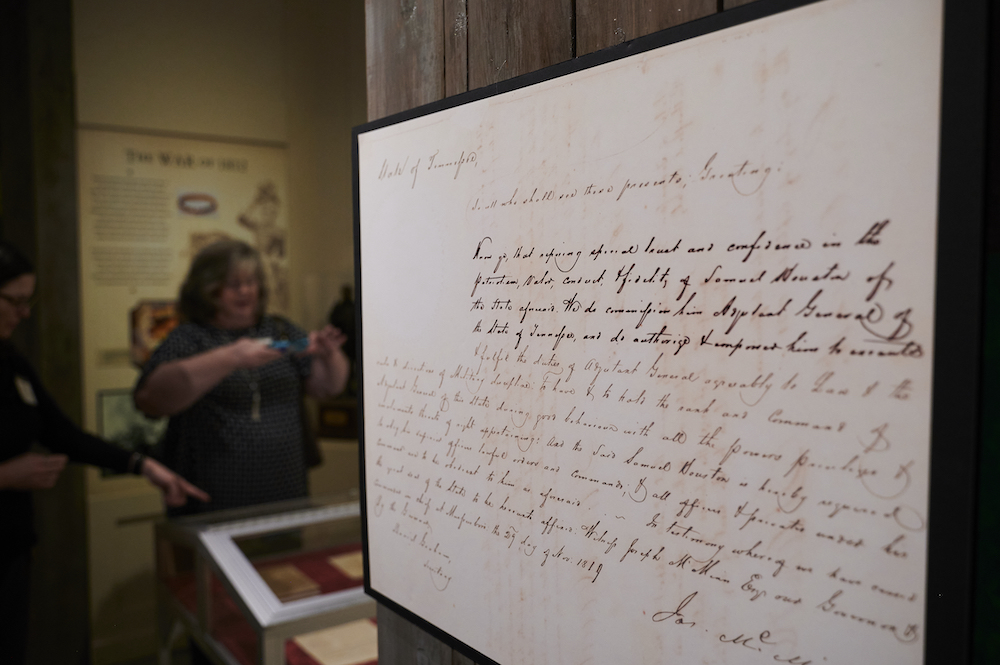 THE WAR OF 1812
State of Tennessee,
To all who shall see these presents, Greeting:
Know ye, that reposing special trust and confidence in the
Patriotism, Valor, conduct, & fidelity of Samuel Houston of
the State aforesaid. We do commission him Adjutant General of
the State of Tennessee, and do authorize & empower him to execute
& fulfil the duties of Adjutant General agreeably to Law & the
rules & directions of Military discipline: To have & to hold the rank and Command of
Adjutant General of this State during good behaviour with all the powers priviledges &
emoluments thereto of right appertaining: And the said Samuel Houston is hereby required
to obey his superior officers lawful orders and commands, & all officers & privates under his
command are to be obedient to him as aforesaid. In testimony whereof we have caused
the great seal of the State to be hereunto affixed. Witness Joseph McMinn Esqr our Governor &
commander in chief at Murfreesboro the 29 day of Nov. 1819
By the Governor,
Daniel Graham,
Secretary
Jos. McMi